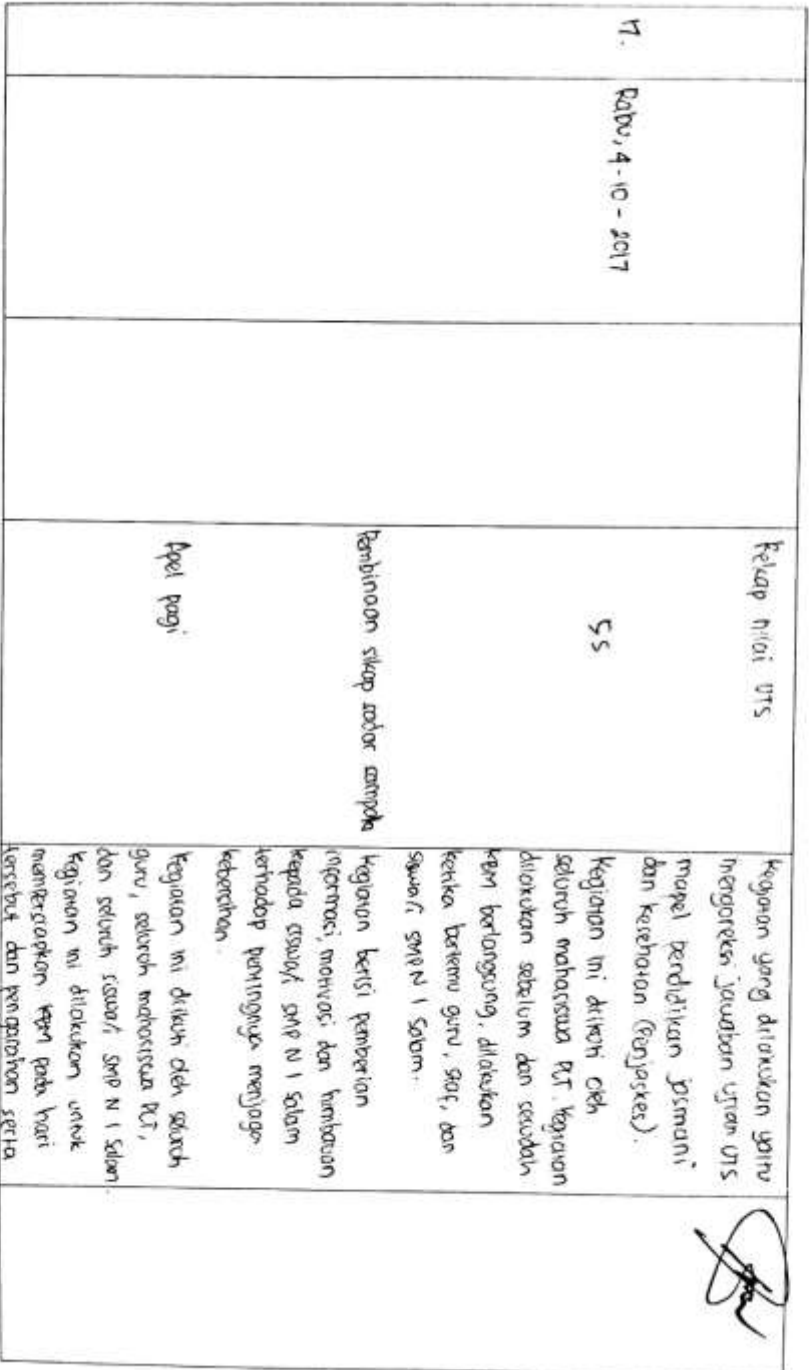 Rekap nilai UTS
Kegiatan yang dilakukan yaitu
mengoreksi jawaban ujian UTS
mapel pendidikan jasmani
dan kesehatan (Penjaskes).
17. Rabu, 4 - 10 - 2017
5S
Kegiatan ini diikuti oleh
seluruh mahasiswa PLT. Kegiatan
dilakukan sebelum dan sesudah
KBM berlangsung, dilakukan
ketika bertemu guru, staf, dan
siswa/i SMP N 1 Salam.
Pembinaan sikap sadar sampah
Kegiatan berisi pemberian
informasi, motivasi dan himbauan
kepada siswa/i SMP N 1 Salam
terhadap pentingnya menjaga
kebersihan.
Apel pagi
Kegiatan ini diikuti oleh seluruh
guru, seluruh mahasiswa PLT,
dan seluruh siswa/i SMP N 1 Salam.
Kegiatan ini dilakukan untuk
mempersiapkan KBM pada hari
tersebut dan pengarahan serta